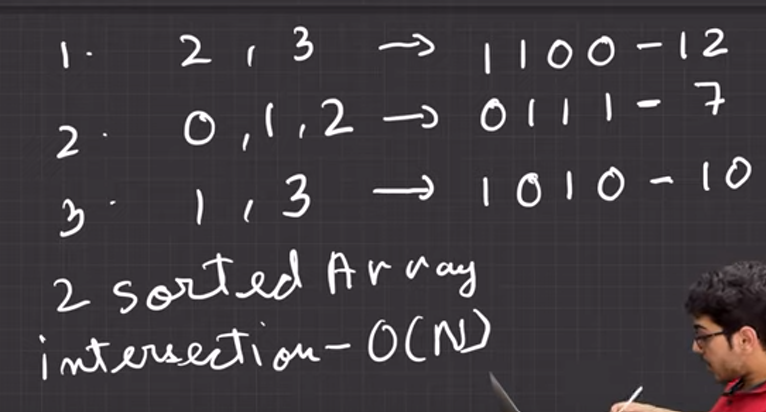 1. 2, 3 → 1100 - 12
2. 0,1,2 → 0111 - 7
3. 1, 3 → 1010 - 10
2 sorted Array
intersection - O(N)